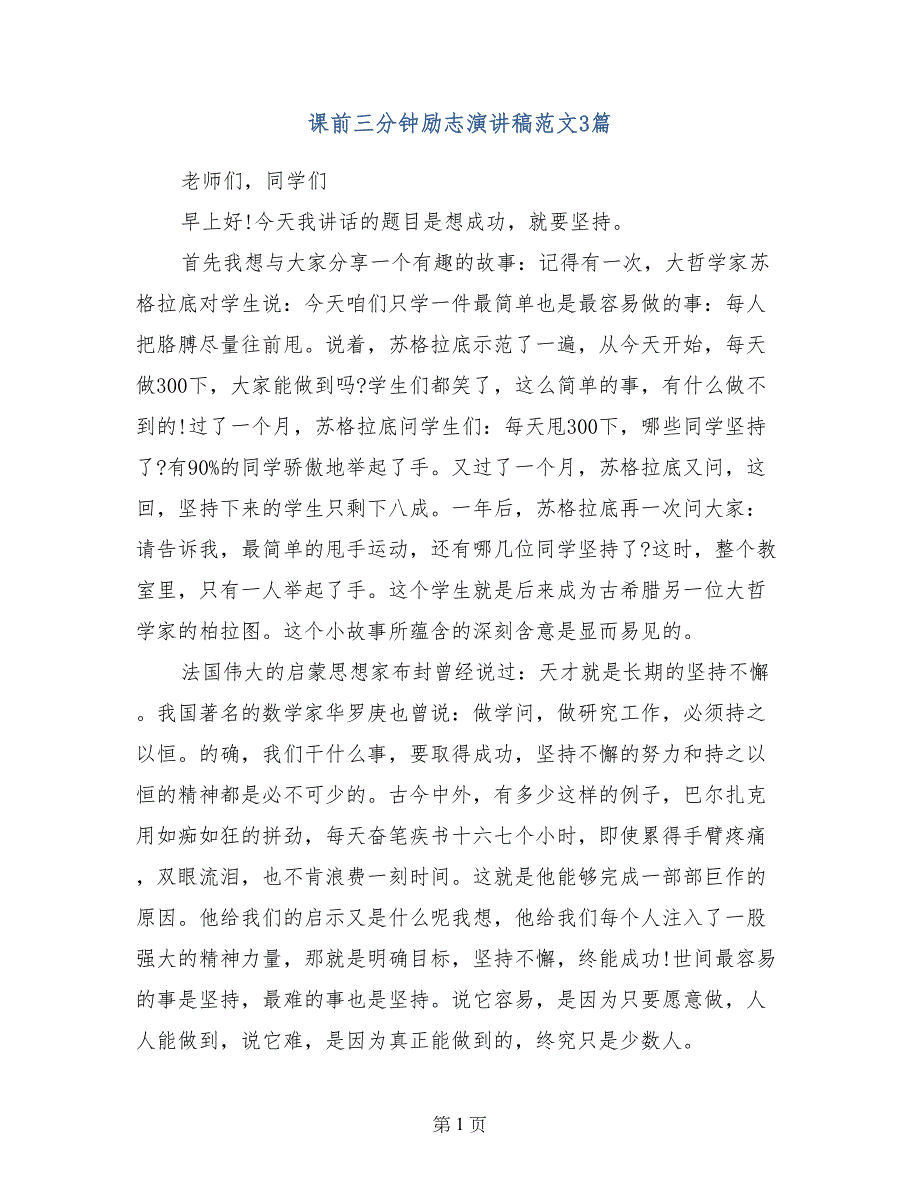 课前三分钟励志演讲稿范文3篇
老师们，同学们
早上好!今天我讲话的题目是想成功，就要坚持。
首先我想与大家分享一个有趣的故事：记得有一次，大哲学家苏
格拉底对学生说：今天咱们只学一件最简单也是最容易做的事：每人
把胳膊尽量往前甩。说着，苏格拉底示范了一遍，从今天开始，每天
做300下，大家能做到吗?学生们都笑了，这么简单的事，有什么做不
到的!过了一个月，苏格拉底问学生们：每天甩300下，哪些同学坚持
了?有90%的同学骄傲地举起了手。又过了一个月，苏格拉底又问，这
回，坚持下来的学生只剩下八成。一年后，苏格拉底再一次问大家：
请告诉我，最简单的甩手运动，还有哪几位同学坚持了?这时，整个教
室里，只有一人举起了手。这个学生就是后来成为古希腊另一位大哲
学家的柏拉图。这个小故事所蕴含的深刻含意是显而易见的。
法国伟大的启蒙思想家布封曾经说过：天才就是长期的坚持不懈
。我国著名的数学家华罗庚也曾说：做学问，做研究工作，必须持之
以恒。的确，我们干什么事，要取得成功，坚持不懈的努力和持之以
恒的精神都是必不可少的。古今中外，有多少这样的例子，巴尔扎克
用如痴如狂的拼劲，每天奋笔疾书十六七个小时，即使累得手臂疼痛
，双眼流泪，也不肯浪费一刻时间。这就是他能够完成一部部巨作的
原因。他给我们的启示又是什么呢我想，他给我们每个人注入了一股
强大的精神力量，那就是明确目标，坚持不懈，终能成功!世间最容易
的事是坚持，最难的事也是坚持。说它容易，是因为只要愿意做，人
人能做到，说它难，是因为真正能做到的，终究只是少数人。
第 1 页